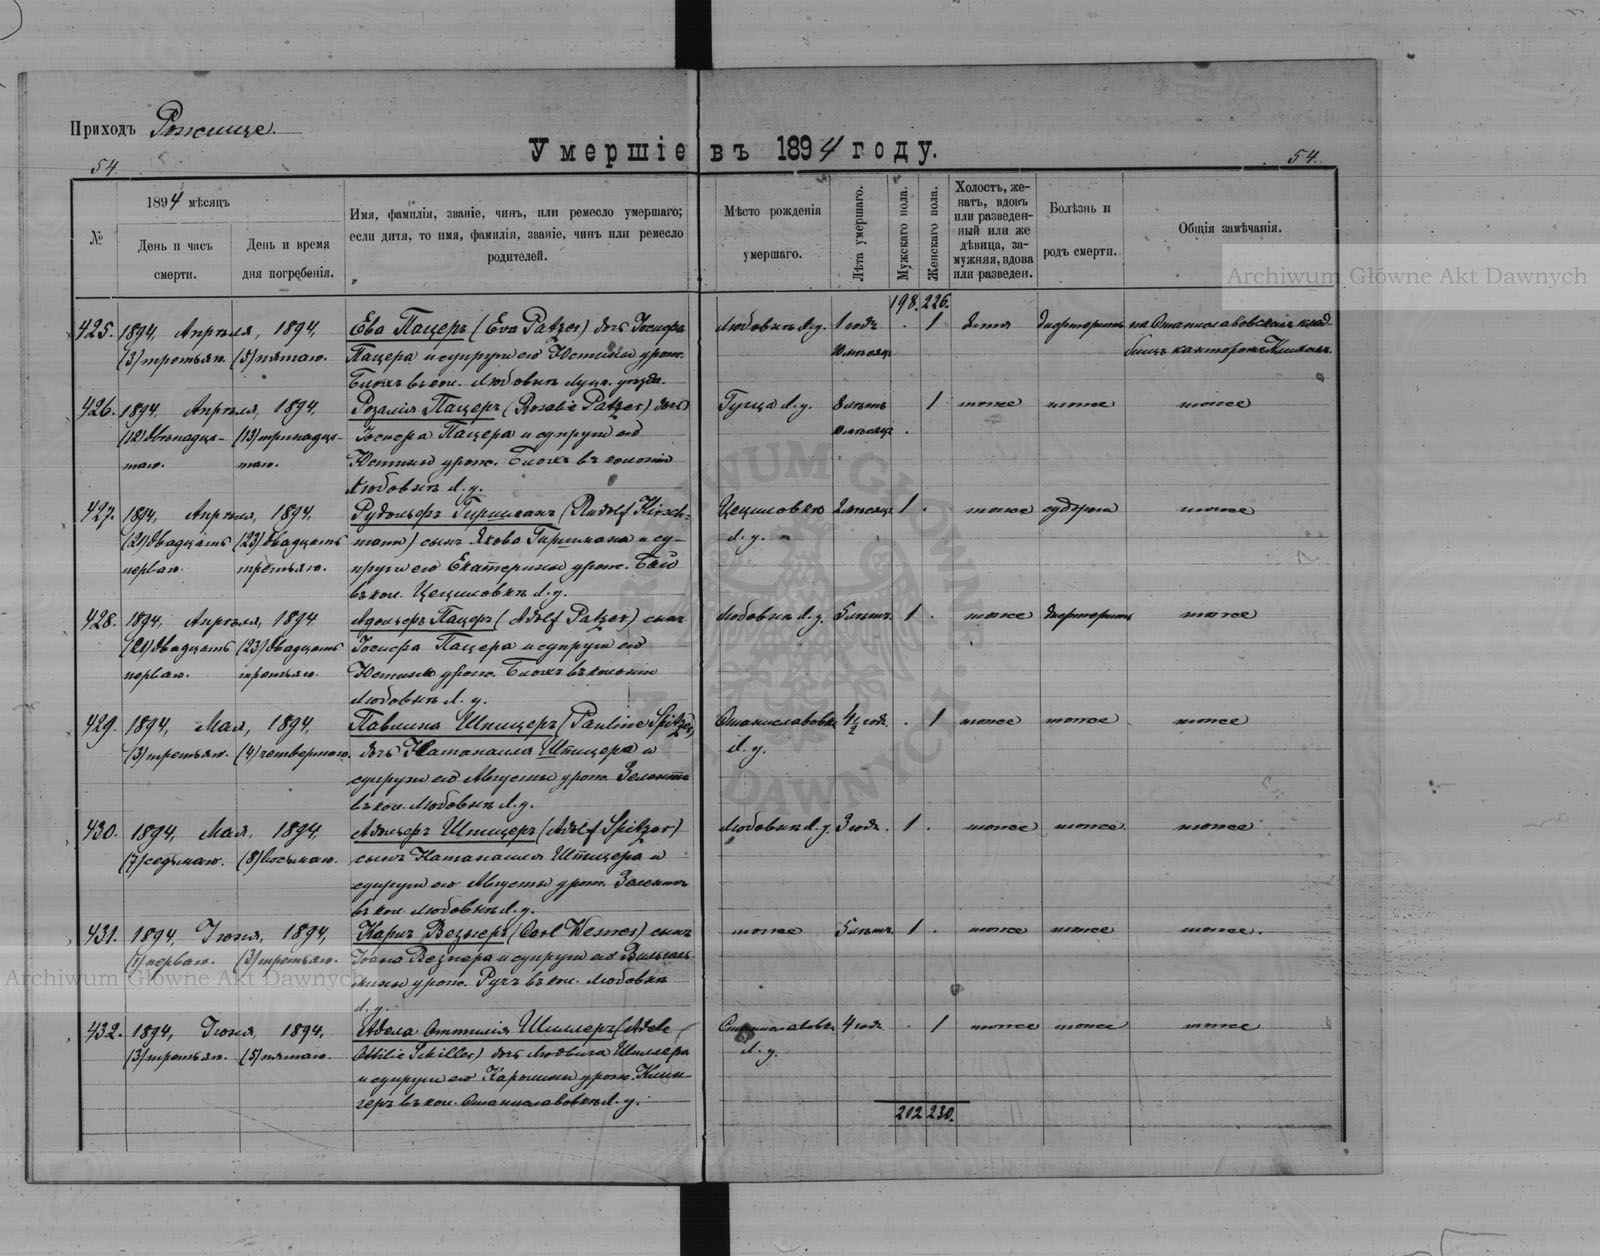 Приходъ Рожище.
Умершіе въ 1894 году.
54.
54.
№
1894 мѣсяцъ
День и часъ смерти.
День и время дня погребенія.
Имя, фамилія, званіе, чинъ, или ремесло умершаго;
если дитя, то имя, фамилія, званіе, чинъ или ремесло
родителей.
Мѣсто рожденія
умершаго.
Лѣта умершаго.
Мужскаго пола.
Женскаго пола.
Холостъ, же-
натъ, вдовъ
или разведен-
ный или же
дѣвица, за-
мужняя, вдова
или разведен.
Болѣзнь и
родъ смерти.
Общія замѣчанія.
Archiwum Główne Akt Dawnych
198. 226.
425. 1894, Апрѣля, 1894, Ева Пацеръ (Eva Patzer) дочь Іосифа Любовкѣ Л.у. 1 годъ . 1 дитя дифтеритъ на Станиславовскомъ клад-
(3) третьяго. (5) пятаго. Пацера и супруги его Юстины урож. 10 мѣсяц.
въ кол. Любовкѣ Луцк. уѣзда.
426. 1894, Апрѣля, 1894, Розалія Пацеръ (Rosalie Patzer) дочь Гуща Л.у. 8 лѣтъ 1 тоже тоже тоже
(12) двѣнадца- (13) тринадца- Іосифа Пацера и супруги его 10 мѣсяц. .
таго. таго. Юстины урож. въ колоніи
Любовкѣ Л.у.
427. 1894, Апрѣля, 1894, Рудольфъ Гиршманъ (Rudolf Hirsch- Цецилювка 2 мѣсяца 1 . тоже судорога тоже
(21) двадцать (23) двадцать mann) сынъ Якова Гиршмана и су- Л.у.
перваго. третьяго. пруги его Екатерины урож.
въ кол. Цецилювкѣ Л.у.
428. 1894, Апрѣля, 1894 Адольфъ Пацеръ (Adolf Patzer) сынъ Любовкѣ Л.у. 5 лѣтъ 1 . тоже дифтеритъ тоже
(21) двадцать (23) двадцать Іосифа Пацера и супруги его
перваго. третьяго. Юстины урож. въ колоніи
Любовкѣ Л.у.
429. 1894, Мая, 1894, Павлина Шпицеръ (Pauline Spitzer) Станиславовка 4½ года . 1 тоже тоже тоже
(3) третьяго. (4) четвертаго. дочь Натанаила Шпицера и Л.у.
супруги его Августы урож.
въ кол. Любовкѣ Л.у.
430. 1894, Мая, 1894 Адольфъ Шпицеръ (Adolf Spitzer) Любовкѣ Л.у. 3 года. 1 . тоже тоже тоже
(7) седьмаго. (8) восьмаго. сынъ Натанаила Шпицера и
супруги его Августы урож.
въ кол. Любовкѣ Л.у.
431. 1894, Іюня, 1894, Карлъ Везнеръ (Carl Wesner) сынъ тоже 5 лѣтъ 1 . тоже тоже тоже.
(1) перваго. (3) третьяго. Іоана Везнера и супруги его Вильгель-
мины урож. въ кол. Любовкѣ
Л.у.
Archiwum Główne Akt Dawnych
432. 1894, Іюня, 1894, Адела Оттилія Шиллеръ (Adele Станиславовк. 4 года . 1 тоже тоже тоже
(3) третьяго. (5) пятаго. Ottilie Schiller) дочь Людвига Шиллера Л.у.
и супруги его Каролины урож. Клин-
геръ въ кол. Станиславовкѣ Л.у.
202 230.